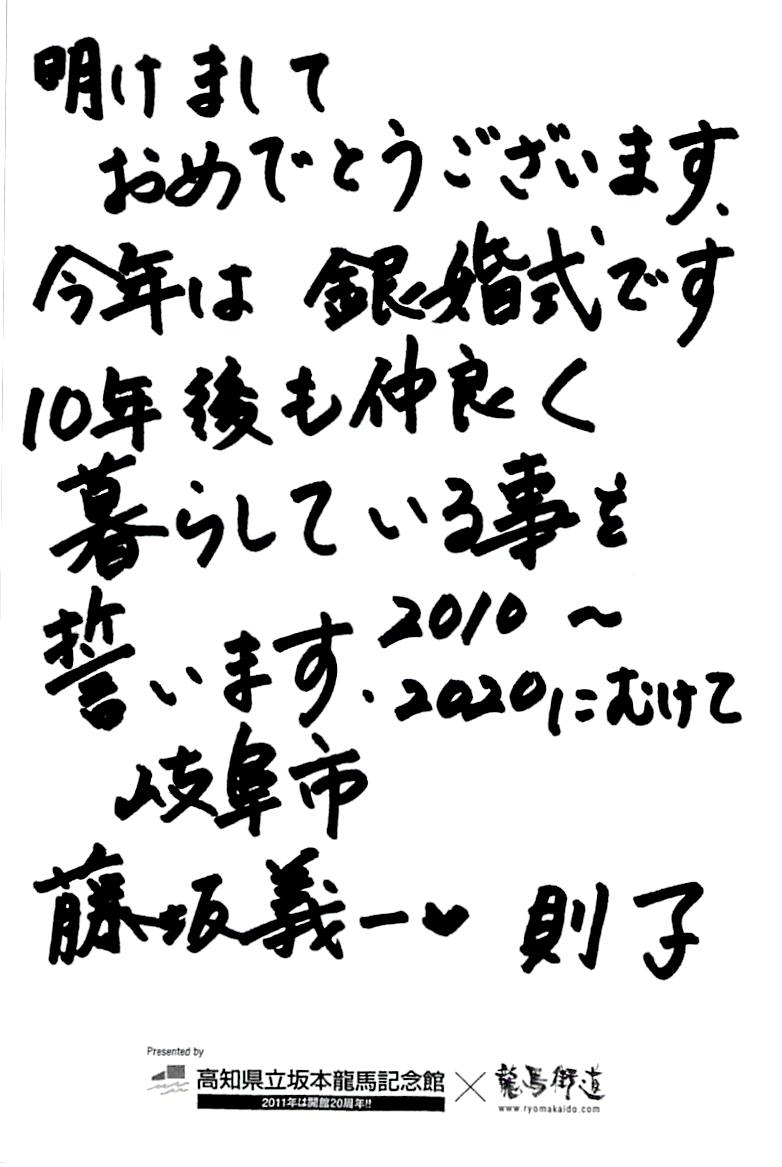 明けまして
おめでとうございます、
今年は 銀婚式です
10年後も仲良く
暮らしている事を
誓います. 2010〜
2020にむけて
岐阜市
藤坂義一♥ 則子
Presented by
高知県立坂本龍馬記念館 × 龍馬街道
2011年は開館20周年!!
www.ryomakaido.com